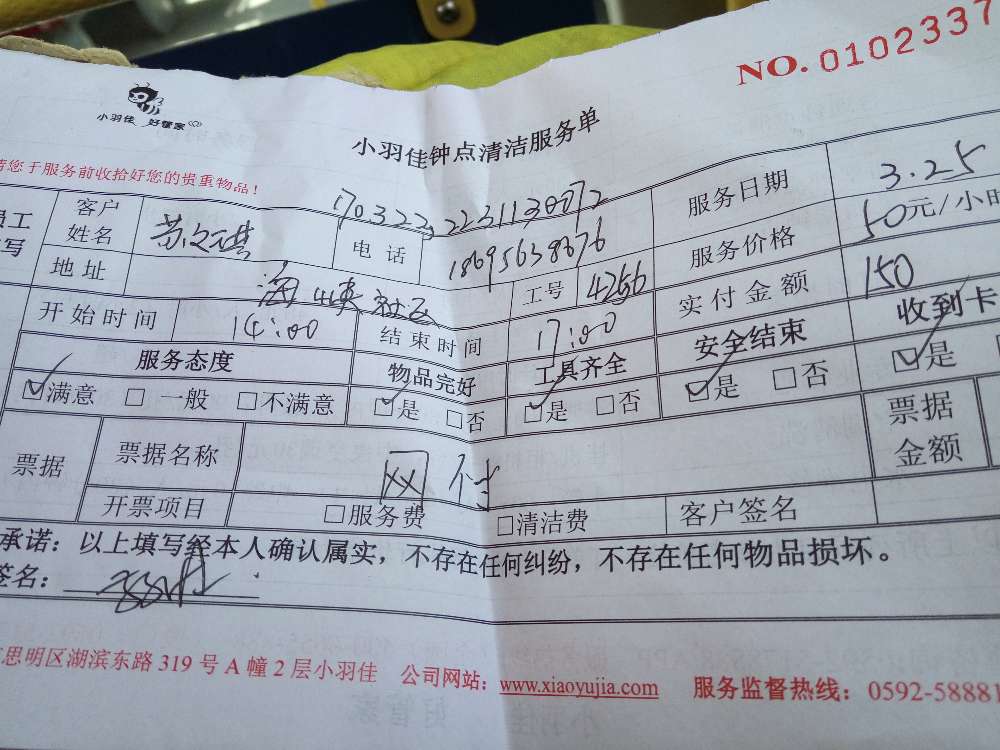 NO.0102337
小羽佳 好管家
小羽佳钟点清洁服务单
请您于服务前收拾好您的贵重物品！
1703222231130072
员工 客户姓名 电话 18695638676 服务日期 3.25
填写 地址 社区 工号 4256 服务价格 50元/小时
开始时间 14:00 结束时间 17:00 实付金额 150
服务态度 物品完好 工具齐全 安全结束 收到卡
☑满意 □一般 □不满意 ☑是 □否 ☑是 □否 ☑是 □否 ☑是
票据 票据名称 网付 票据金额
开票项目 □服务费 □清洁费 客户签名
承诺：以上填写经本人确认属实，不存在任何纠纷，不存在任何物品损坏。
签名：
思明区湖滨东路319号A幢2层小羽佳 公司网站：www.xiaoyujia.com 服务监督热线：0592-58881